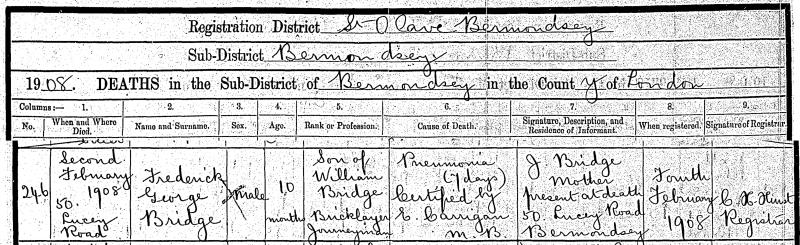 Registration District St Olave Bermondsey
Sub-District Bermondsey
1908. DEATHS in the Sub-District of Bermondsey in the County of London
Columns:— 1. 2. 3. 4. 5. 6. 7. 8. 9.
No. When and Where Died. Name and Surname. Sex. Age. Rank or Profession. Cause of Death. Signature, Description, and Residence of Informant. When registered. Signature of Registrar.
246
Second
February
1908
50.
Lucey
Road.
Frederick
George
Bridge
Male
10
months
Son of
William
Bridge
Bricklayer
Journeyman
Pneumonia
(7 days)
Certified by
E. Carrigan
M. B.
J Bridge
Mother
present at death
50. Lucey Road
Bermondsey
Fourth
February
1908
C. H. Hunt
Registrar